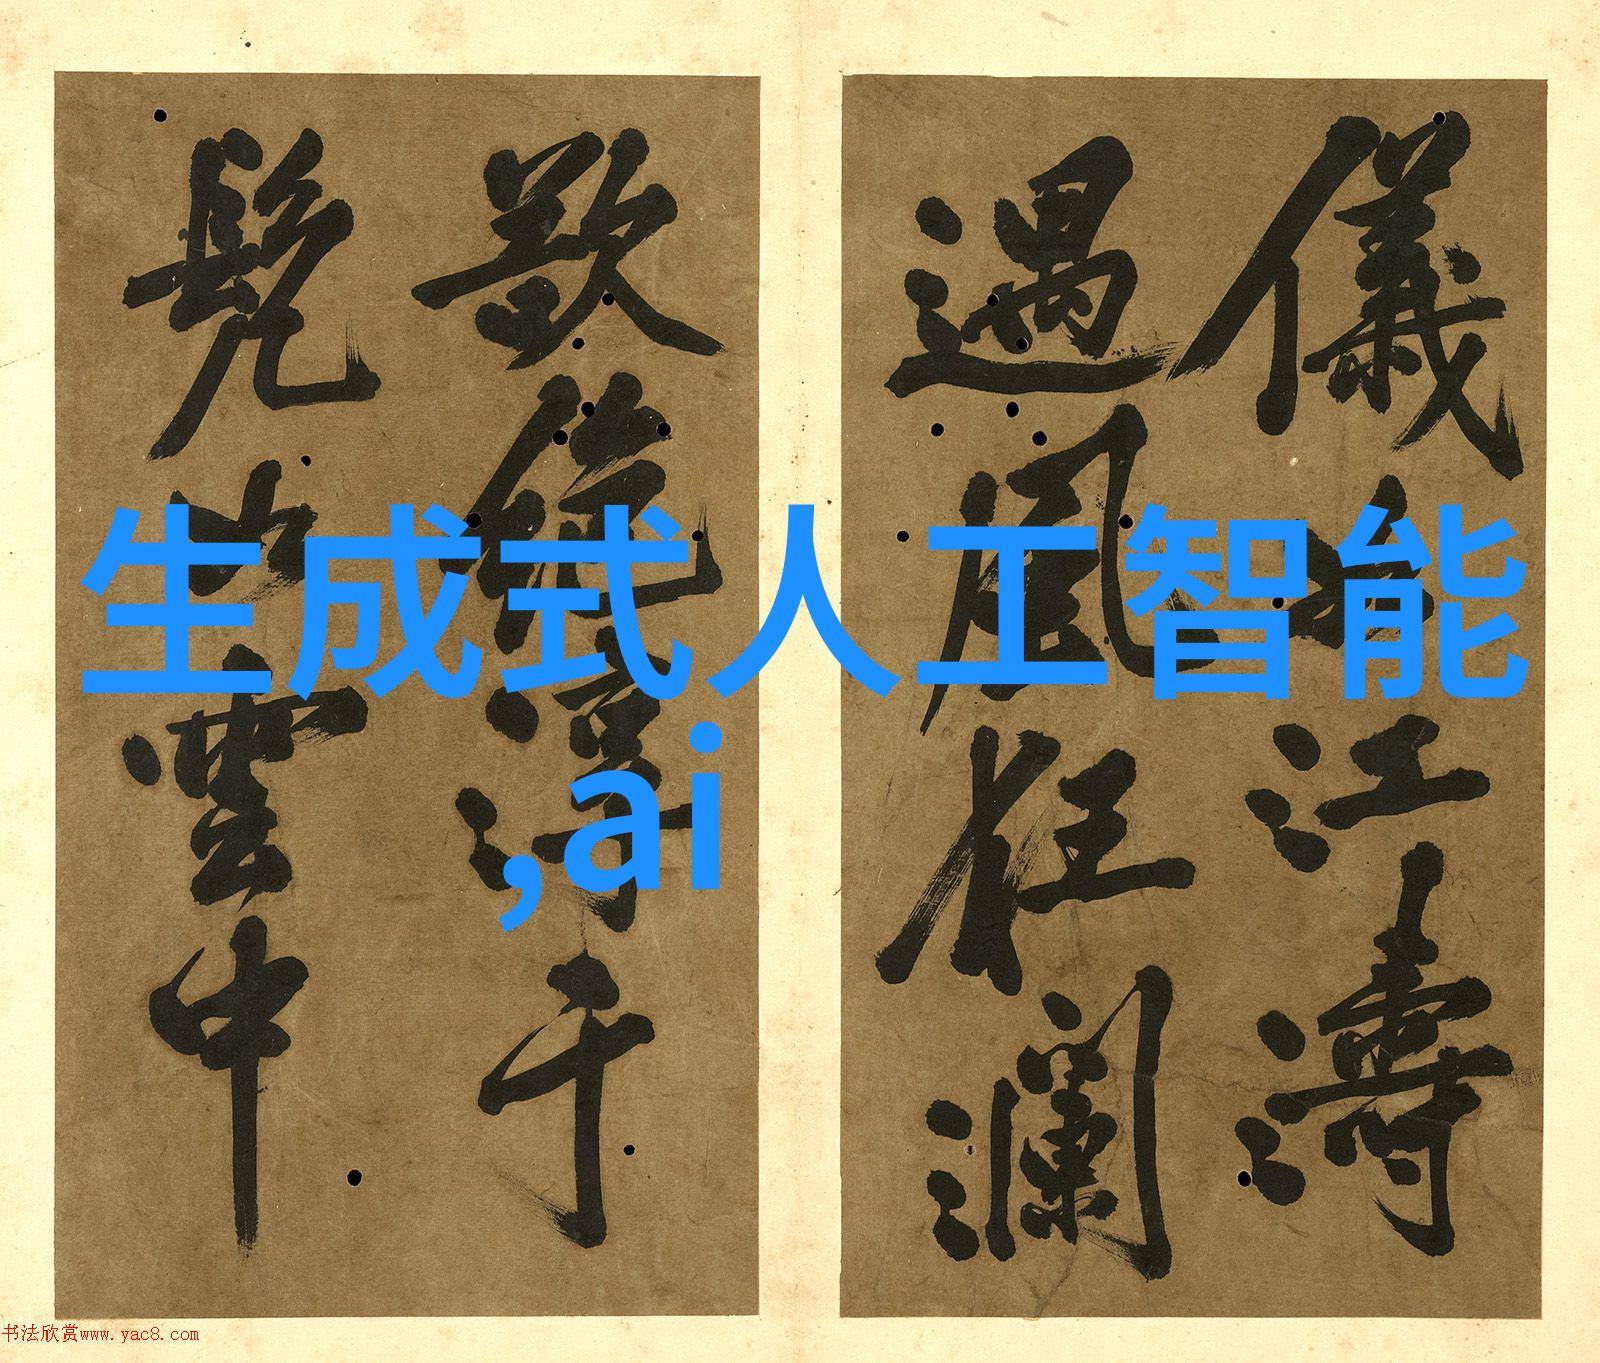 儀江濤
遇風狂瀾
于
雲中
生成式人工智能
,ai
书法欣赏www.yac8.com